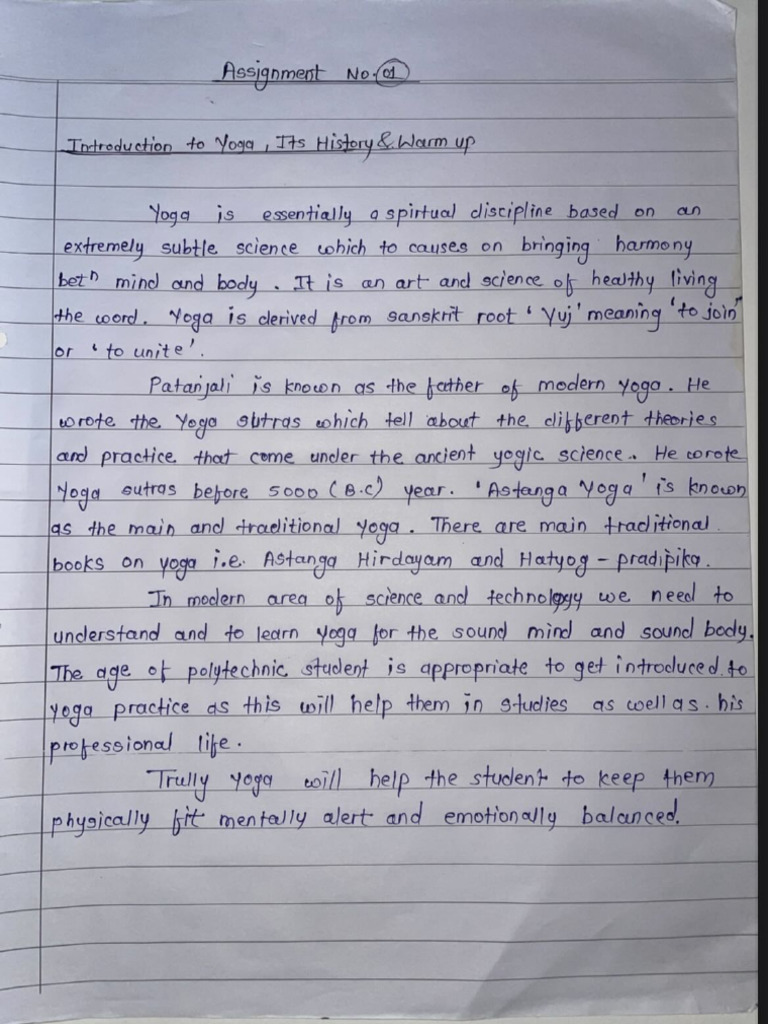 Assignment No. 01
Introduction to Yoga, Its History & Warm up
Yoga is essentially a spirtual discipline based on an
extremely subtle science which to causes on bringing harmony
betⁿ mind and body. It is an art and science of healthy living
the word. Yoga is derived from sanskrit root ' Yuj' meaning 'to join"
or ' to unite'.
Patanjali is known as the father of modern yoga. He
wrote the Yoga sutras which tell about the different theories
and practice that come under the ancient yogic science. He wrote
Yoga sutras before 5000 (B.C) year. 'Astanga Yoga' is known
as the main and traditional yoga. There are main traditional
books on yoga i.e. Astanga Hirdayam and Hatyog - pradipika.
In modern area of science and technology we need to
understand and to learn yoga for the sound mind and sound body.
The age of polytechnic student is appropriate to get introduced to
yoga practice as this will help them in studies as well as. his
professional life.
Trully yoga will help the student to keep them
physically fit mentally alert and emotionally balanced.